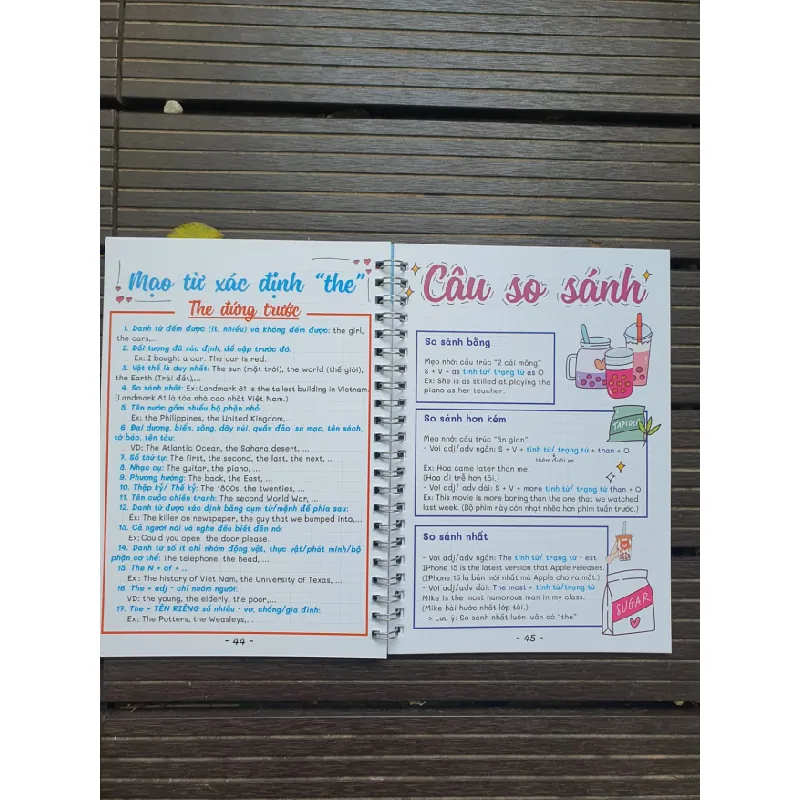 Mạo từ xác định "the"
The đứng trước
1. Danh từ đếm được (ít, nhiều) và không đếm được: the girl,
the cars,...
2. Đối tượng đã xác định, đề cập trước đó.
Ex: I bought a car. The car is red.
3. Vật thể là duy nhất: The sun (mặt trời), the world (thế giới),
the Earth (Trái đất),...
4. So sánh nhất: Ex: Landmark 81 is the tallest building in Vietnam.
(Landmark 81 là tòa nhà cao nhất Việt Nam.)
5. Tên nước gồm nhiều bộ phận nhỏ
Ex: the Philippines, the United Kingdom,
6. Đại dương, biển, sông, dãy núi, quần đảo, sa mạc, tên sách,
tờ báo, tên tàu:
VD: The Atlantic Ocean, the Sahara desert, ...
7. Số thứ tự: The first, the second, the last, the next, ...
8. Nhạc cụ: The guitar, the piano, ...
9. Phương hướng: The back, the East, ...
10. Thập kỷ/ Thế kỷ: The 1800s, the twenties, ...
11. Tên cuộc chiến tranh: The second World War, ...
12. Danh từ được xác định bằng cụm từ/mệnh đề phía sau:
Ex: The killer on newspaper, the guy that we bumped into,...
13. Cả người nói và nghe đều biết đến nó:
Ex: Could you open the door please.
14. Danh từ số ít chỉ nhóm động vật, thực vật/phát minh/bộ
phận cơ thể: The telephone, the head, ...
15. The N + of + ...
Ex: The history of Viet Nam, the University of Texas, ...
16. The + adj - chỉ nhóm người:
VD: the young, the elderly, the poor,...
17. The + TÊN RIÊNG số nhiều - vợ, chồng/gia đình:
Ex: The Potters, the Weasleys,...
- 44 -
Câu so sánh
So sánh bằng
Mẹo nhớ: cấu trúc "2 cái mông"
S + V + as tính từ/ trạng từ as O
Ex: She is as skilled at playing the
piano as her teacher.
So sánh hơn kém
Mẹo nhớ: cấu trúc "ăn gian"
- Với adj/ adv ngắn: S + V + tính từ/ trạng từ + than + O
thêm đuôi er
Ex: Hoa came later than me.
(Hoa đi trễ hơn tôi.)
- Với adj/ adv dài: S + V + more tính từ/ trạng từ than + O
Ex: This movie is more boring than the one that we watched
last week. (Bộ phim này còn nhạt nhẽo hơn phim tuần trước.)
TAPIOCA
So sánh nhất
- Với adj/adv ngắn: The tính từ/ trạng từ - est
IPhone 15 is the latest version that Apple releases.
(IPhone 15 là bản mới nhất mà Apple cho ra mắt.)
- Với adj/adv dài: The most + tính từ/trạng từ
Mike is the most humorous man in my class.
(Mike hài hước nhất lớp tôi.)
> Lưu ý: So sánh nhất luôn luôn có "the"
SUGAR
- 45 -